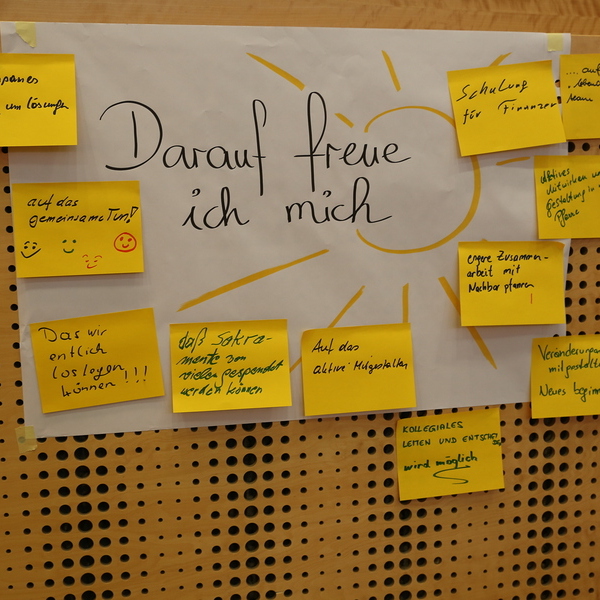 Darauf freue
ich mich
um lösungen
auf das
gemeinsame Tun!
Das wir
entlich
loslegen
können!!!
daß Sakra-
mente von
vielen gespendet
werden können
Auf das
aktive Mitgestalten
Schulung
für Finanzer
.... auf
engere Zusammen-
arbeit mit
Nachbarpfarren
!
Aktives
Mitwirken
gestaltung
Pfarre
Veränderungen
mitgestalten
Neues beginnen
KOLLEGIALES
LEITEN UND ENTSCHEI
wird möglich